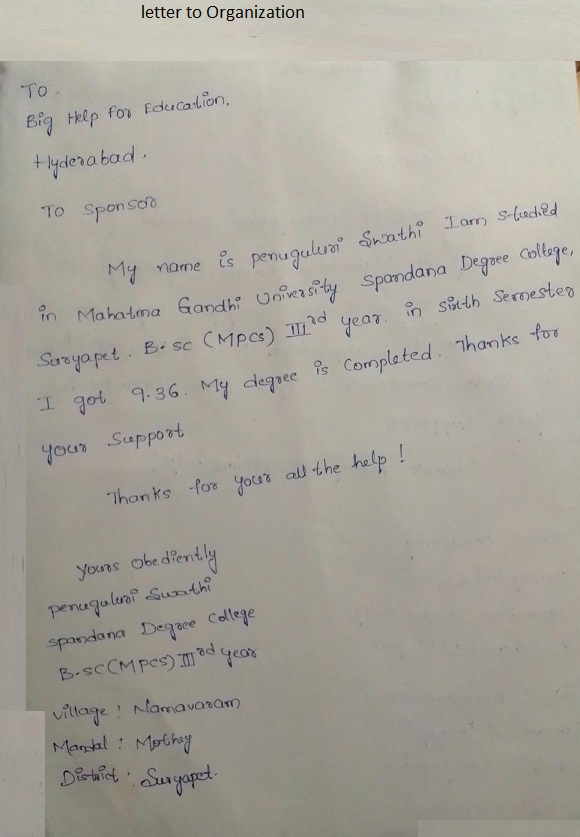 letter to Organization
To,
Big Help for Education,
Hyderabad.
To sponsor
My name is penuguluri Swathi I am studied
in Mahatma Gandhi University Spandana Degree College,
Suryapet. B.sc (MPCS) IIIrd year. in sixth Semester
I got 9.36. My degree is completed. Thanks for
your Support
Thanks for your all the help!
yours obediently
penuguluri Swathi
spandana Degree College
B.SC(MPCS) IIIrd year
village : Namavaram
Mandal : Mothey
District : Suryapet.